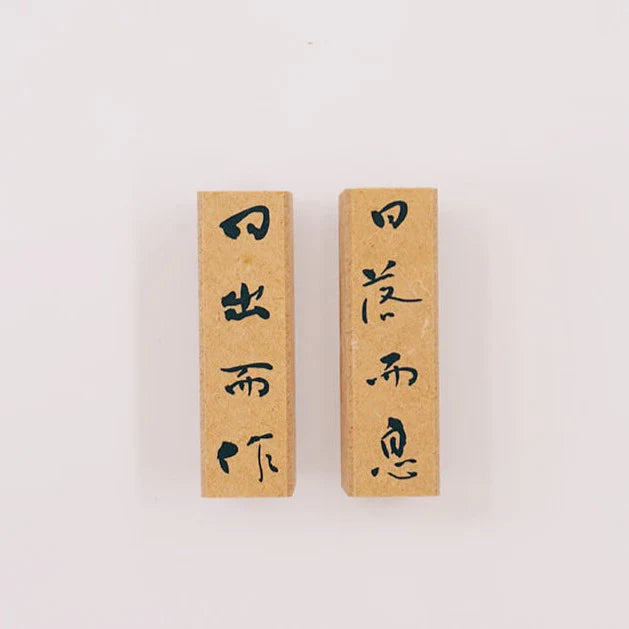 日出而作
日落而息